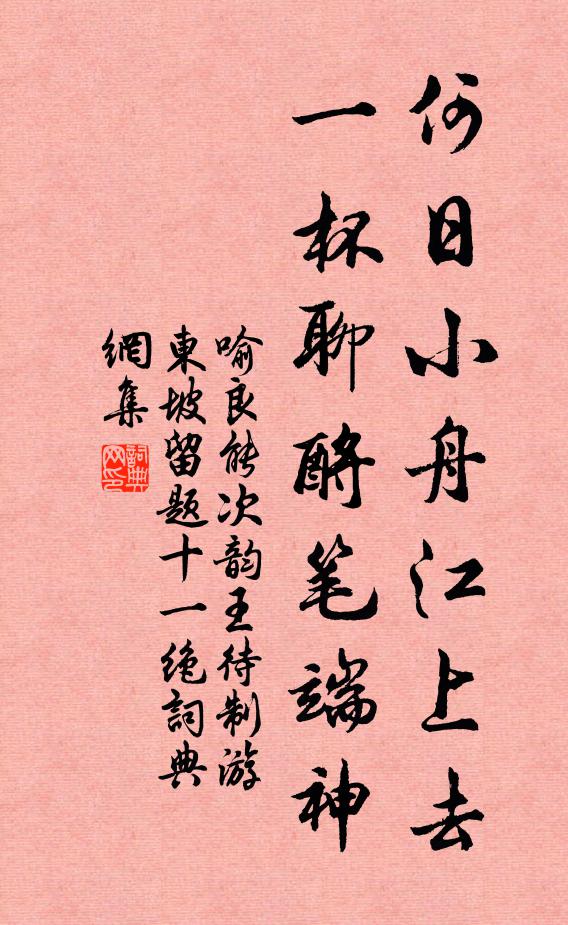 何日小舟江上去
一杯聊酹笔端神
喻良能次韵王待制游
東坡留题十一绝詞典
網集
詞典网印